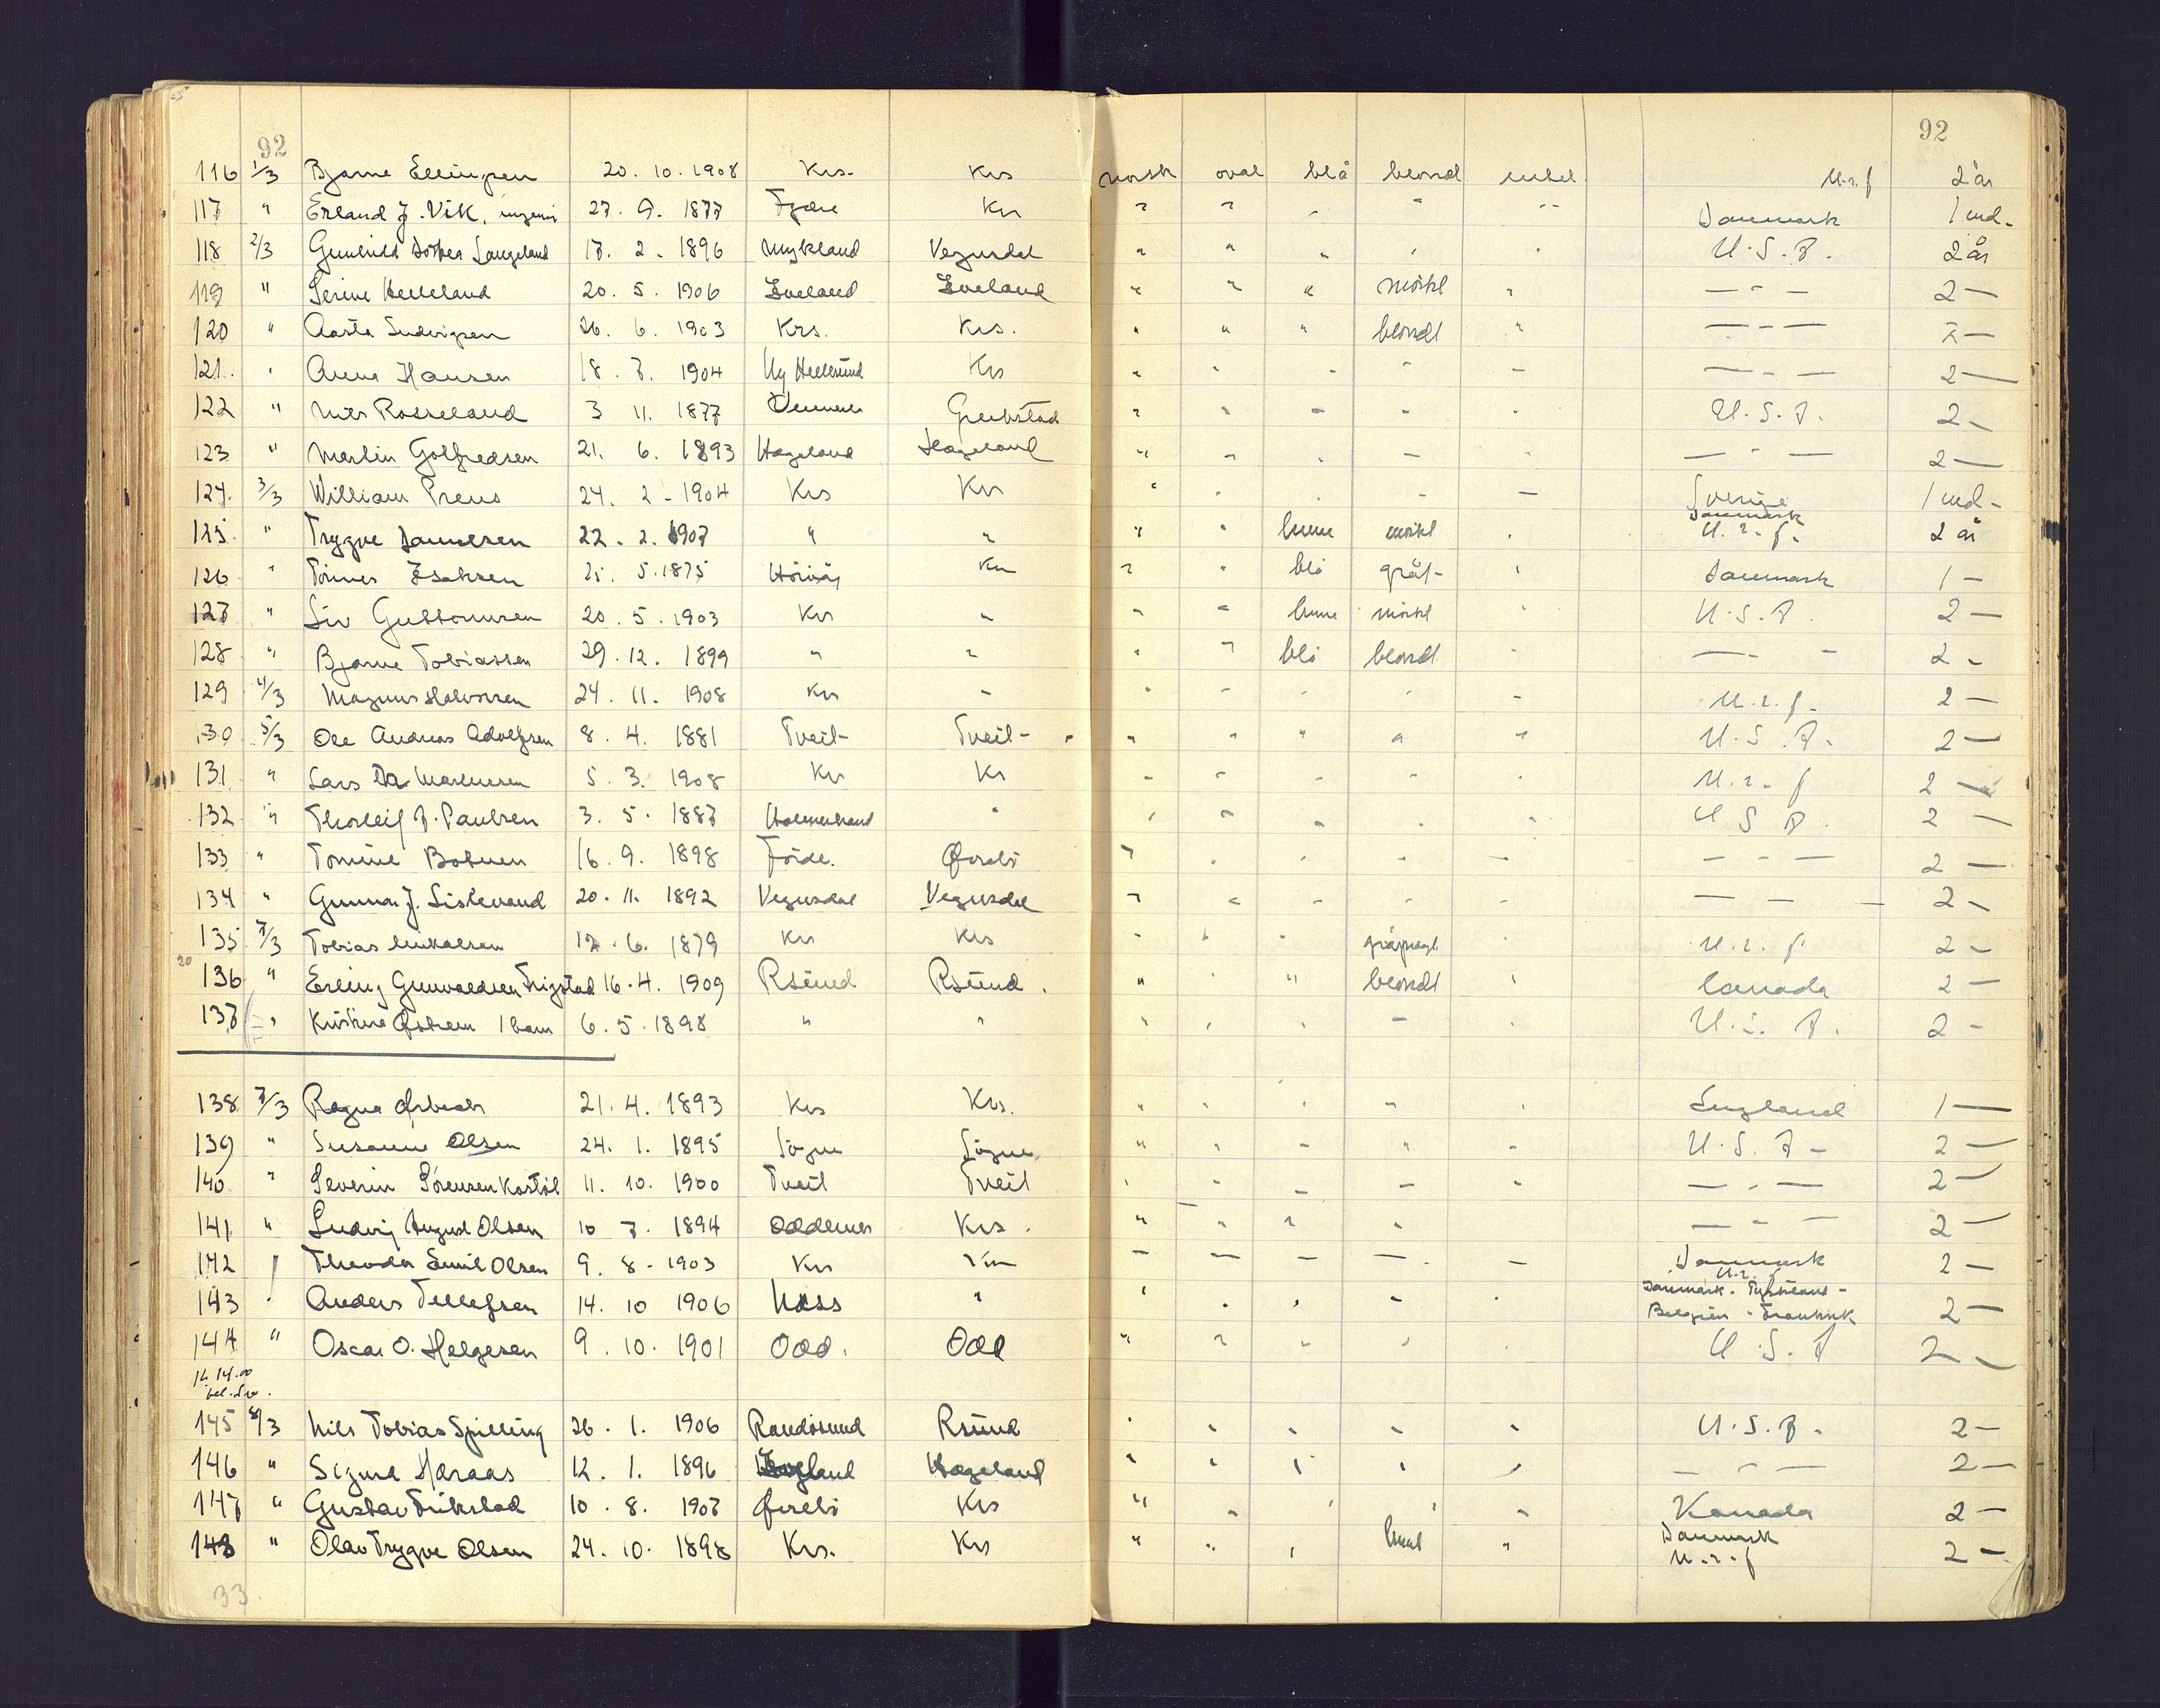 92 92
116 1/3 Bjarne Ellingsen 20. 10. 1908 Krs. Krs norsk oval blå blond U.r.f 2 år
117 " Erland J. Vik, 27. 9. 1877 Fjære Krs " " " " " Danmark 1 md.
118 2/3 Gunhild Langeland 17. 2. 1896 Mykland Vegusdal " " " " " U.S.A. 2 år
119 " Serine Helleland 20. 5. 1906 Iveland Iveland " " " mörkt " — " — 2 —
120 " Aasta Ludvigsen 26. 6. 1903 Krs. Krs. " " " blondt " — " — 2 —
121. " Anna Hansen 18. 7. 1904 Ny Hellesund Krs " " " " " — " — 2 —
122 " Nils Rosseland 3 11. 1877 Grubstad " " " " " U.S.A. 2 —
123 " Martin Golfredsen 21. 6. 1893 Hægeland Hægeland " " " " " — " — 2 —
124. 3/3 William Preus 24. 2 - 1904 Krs Krs " " " " " Sverige Danmark 1 md -
125. " Trygve Danielsen 22. 2. 1907 " " " " brune mörkt " U.r.f. 2 år
126 " Tönnes Isaksen 25. 5. 1875 Hövåg Krs " " blå gråt- " Danmark 1 —
127 " Liv Guttormsen 20. 5. 1903 Krs " " " brune mörkt " U.S.A. 2 —
128 " Bjarne Tobiassen 29. 12. 1899 " " " " blå blondt " — " — 2 —
129 4/3 Magnus Halvorsen 24. 11. 1908 Krs " " " " " " U.r.f. 2 —
130 5/3 Ole Andreas Adolfsen 8. 4. 1881 Tveit- Tveit- " " " " " U.S.A. 2 —
131 " Lars 5. 3. 1908 Krs Kr " " " " " U.r.f 2 —
132 " Thorleif A. Paulsen 3. 5. 1887 Holmestrand " " " " " " U S A. 2 —
133 " Tomine 16. 9. 1898 Förde. Övrebö " " " " " — " — 2 —
134 " Gunnar J. Lislevand 20. 11. 1892 Vegusdal Vegusdal " " " " " — — — 2 —
135 7/3 Tobias Mikalsen 12. 6. 1879 Krs Krs " " " " U.r.f 2 —
20
136 " Erling Gunvaldsen Trigstad 16. 4. 1909 Rsund Rsund. " " " blondt " Canada 2 —
137 " Kristine 1 barn 6. 5. 1898 " " " " " " " U.S.A. 2 —
138 7/3 Ragna 21. 4. 1893 Krs Krs. " " " " " England 1 —
139 " Susanne Olsen 24. 1. 1895 Sögne Sögne " " " " " U.S.A - 2 —
140 " Severin Sörensen Kostöl 11. 10. 1900 Tveit Tveit " " " " " — " — 2 —
141 " Ludvig August Olsen 10 7. 1894 Oddernes Krs. " " " " — " — 2 —
142 Theodor Emil Olsen 9. 8 - 1903 Krs Krs — — — — — Danmark U.r.f 2 —
143 " Anders Tellefsen 14. 10 1906 " " " " " " Danmark - Tyskland - Belgien - Frankrik 2 —
144 " Oscar O. Helgesen 9. 10. 1901 Odd. Odd " " " " " U.S.A 2 —
kl. 14.00
145 8/3 Nils Tobias Spilling 26. 1. 1906 Randösund Rsund " " " " " U.S.A. 2 —
146 " Sigurd Höraas 12. 1. 1896 Hægeland " " " " " — " — 2 —
147 " Gustav Trikstad 10. 8. 1907 Övrebö Krs " " " " " Kanada 2 —
148 " Olav Trygve Olsen 24. 10. 1898 Krs. Krs " " " brunt " Danmark U.r.f 2 —
33